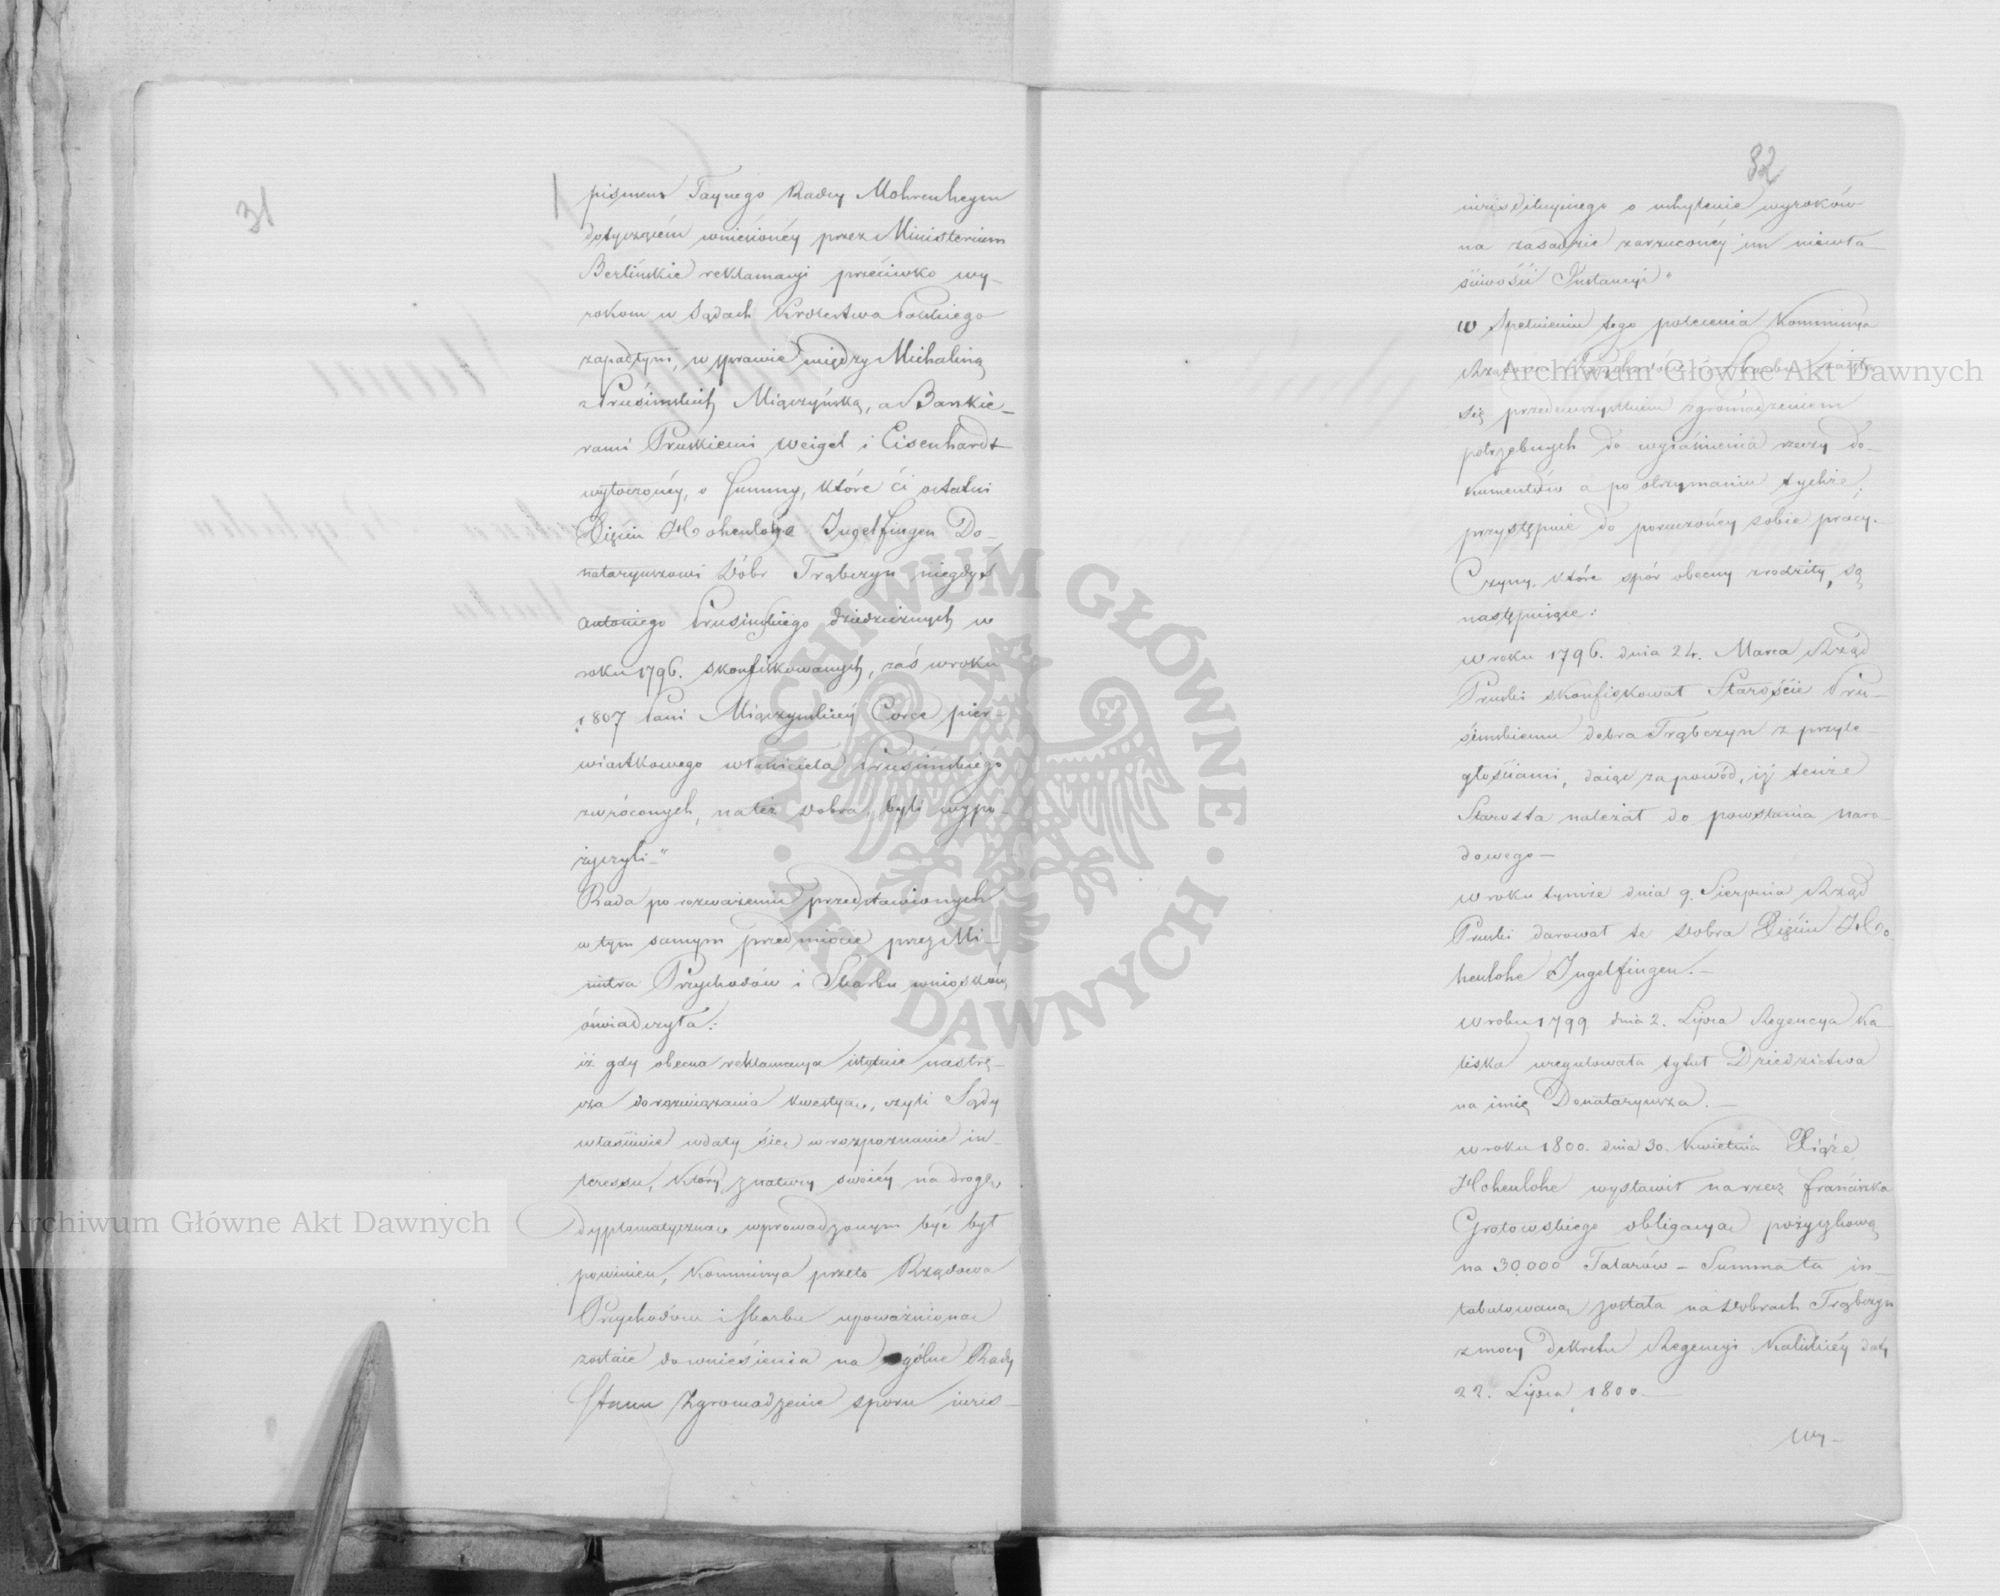 31
pismem Taynego Radcy Mohrenheym
dotyczącém wniesionéy przez Ministerium
Berlińskie reklamacyi przeciwko wy-
rokom w Sądach Królestwa Polskiego
zapadłym, w sprawie między Michaliną
z Prusimskich Miączyńską, a Bankie-
rami Pruskiemi Weigel i Eisenhardt
wytoczonéy, o Summy, które ci ostatni
Xięciu Hohenlohe Ingelfingen Do-
nataryuszowi Dóbr Trąbczyn niegdyś
Antoniego Prusimskiego dziedzicznych w
roku 1796. skonfiskowanych, zaś w roku
1807 Pani Miączyńskiéy Corce pier-
wiastkowego właściciela Prusimskiego
zwróconych, na też dobra, byli wypo-
życzyli."
Rada po rozważeniu przedstawionych
w tym samym przedmiocie przez Mi-
nistra Przychodów i Skarbu wniosków,
oświadczyła:
iż gdy obecna reklamacya istotnie nastrę-
cza do rozwiązania kwestyą, czyli Sądy
właściwie wdały się w rozpoznanie in-
teressu, który z natury swoiéy na drogę
dyplomatyczną wprowadzonym być był
powinien, Kommissya przeto Rządowa
Przychodów i Skarbu upoważnioną
zostaie do wniesienia na ogólne Rady
Stanu Zgromadzenie sporu iuris-
82
iurisdikcyinego o uchylenie wyroków
na zasadzie zarzuconéy im niewła-
ściwości Instancyi"
W Spełnieniu tego polecenia Kommissya
Rządowa Przychodów i Skarbu zaięła
się przedewszystkiem zgromadzeniem
potrzebnych do wyiaśnienia rzeczy do-
kumentów a po otrzymaniu tychże,
przystępuie do poruczonéy sobie pracy.
Czyny, które spór obecny zrodziły, są
następuiące:
W roku 1796. dnia 24. Marca Rząd
Pruski skonfiskował Staroście Pru-
simskiemu dobra Trąbczyn z przyle-
głościami, daiąc za powód, iż tenże
Starosta należał do powstania naro-
dowego —
W roku tymże dnia 9. Sierpnia Rząd
Pruski darował te dobra Xięciu Ho-
henlohe Ingelfingen. —
W roku 1799. dnia 2. Lipca Regencya Ka-
liska uregulowała tytuł Dziedzictwa
na imię Donataryusza. —
W roku 1800. dnia 30. Kwietnia Xiąże
Hohenlohe wystawił na rzecz Franciszka
Grotowskiego obligacyą pożyczkową
na 30,000 Talarów — Summa ta in-
tabulowaną została na dobrach Trąbczyn
z mocy dekretu Regencyi Kaliskiéy daty
22. Lipca 1800. —
Wy-
Archiwum Główne Akt Dawnych
Archiwum Główne Akt Dawnych
ARCHIWUM GŁÓWNE · AKT DAWNYCH ·